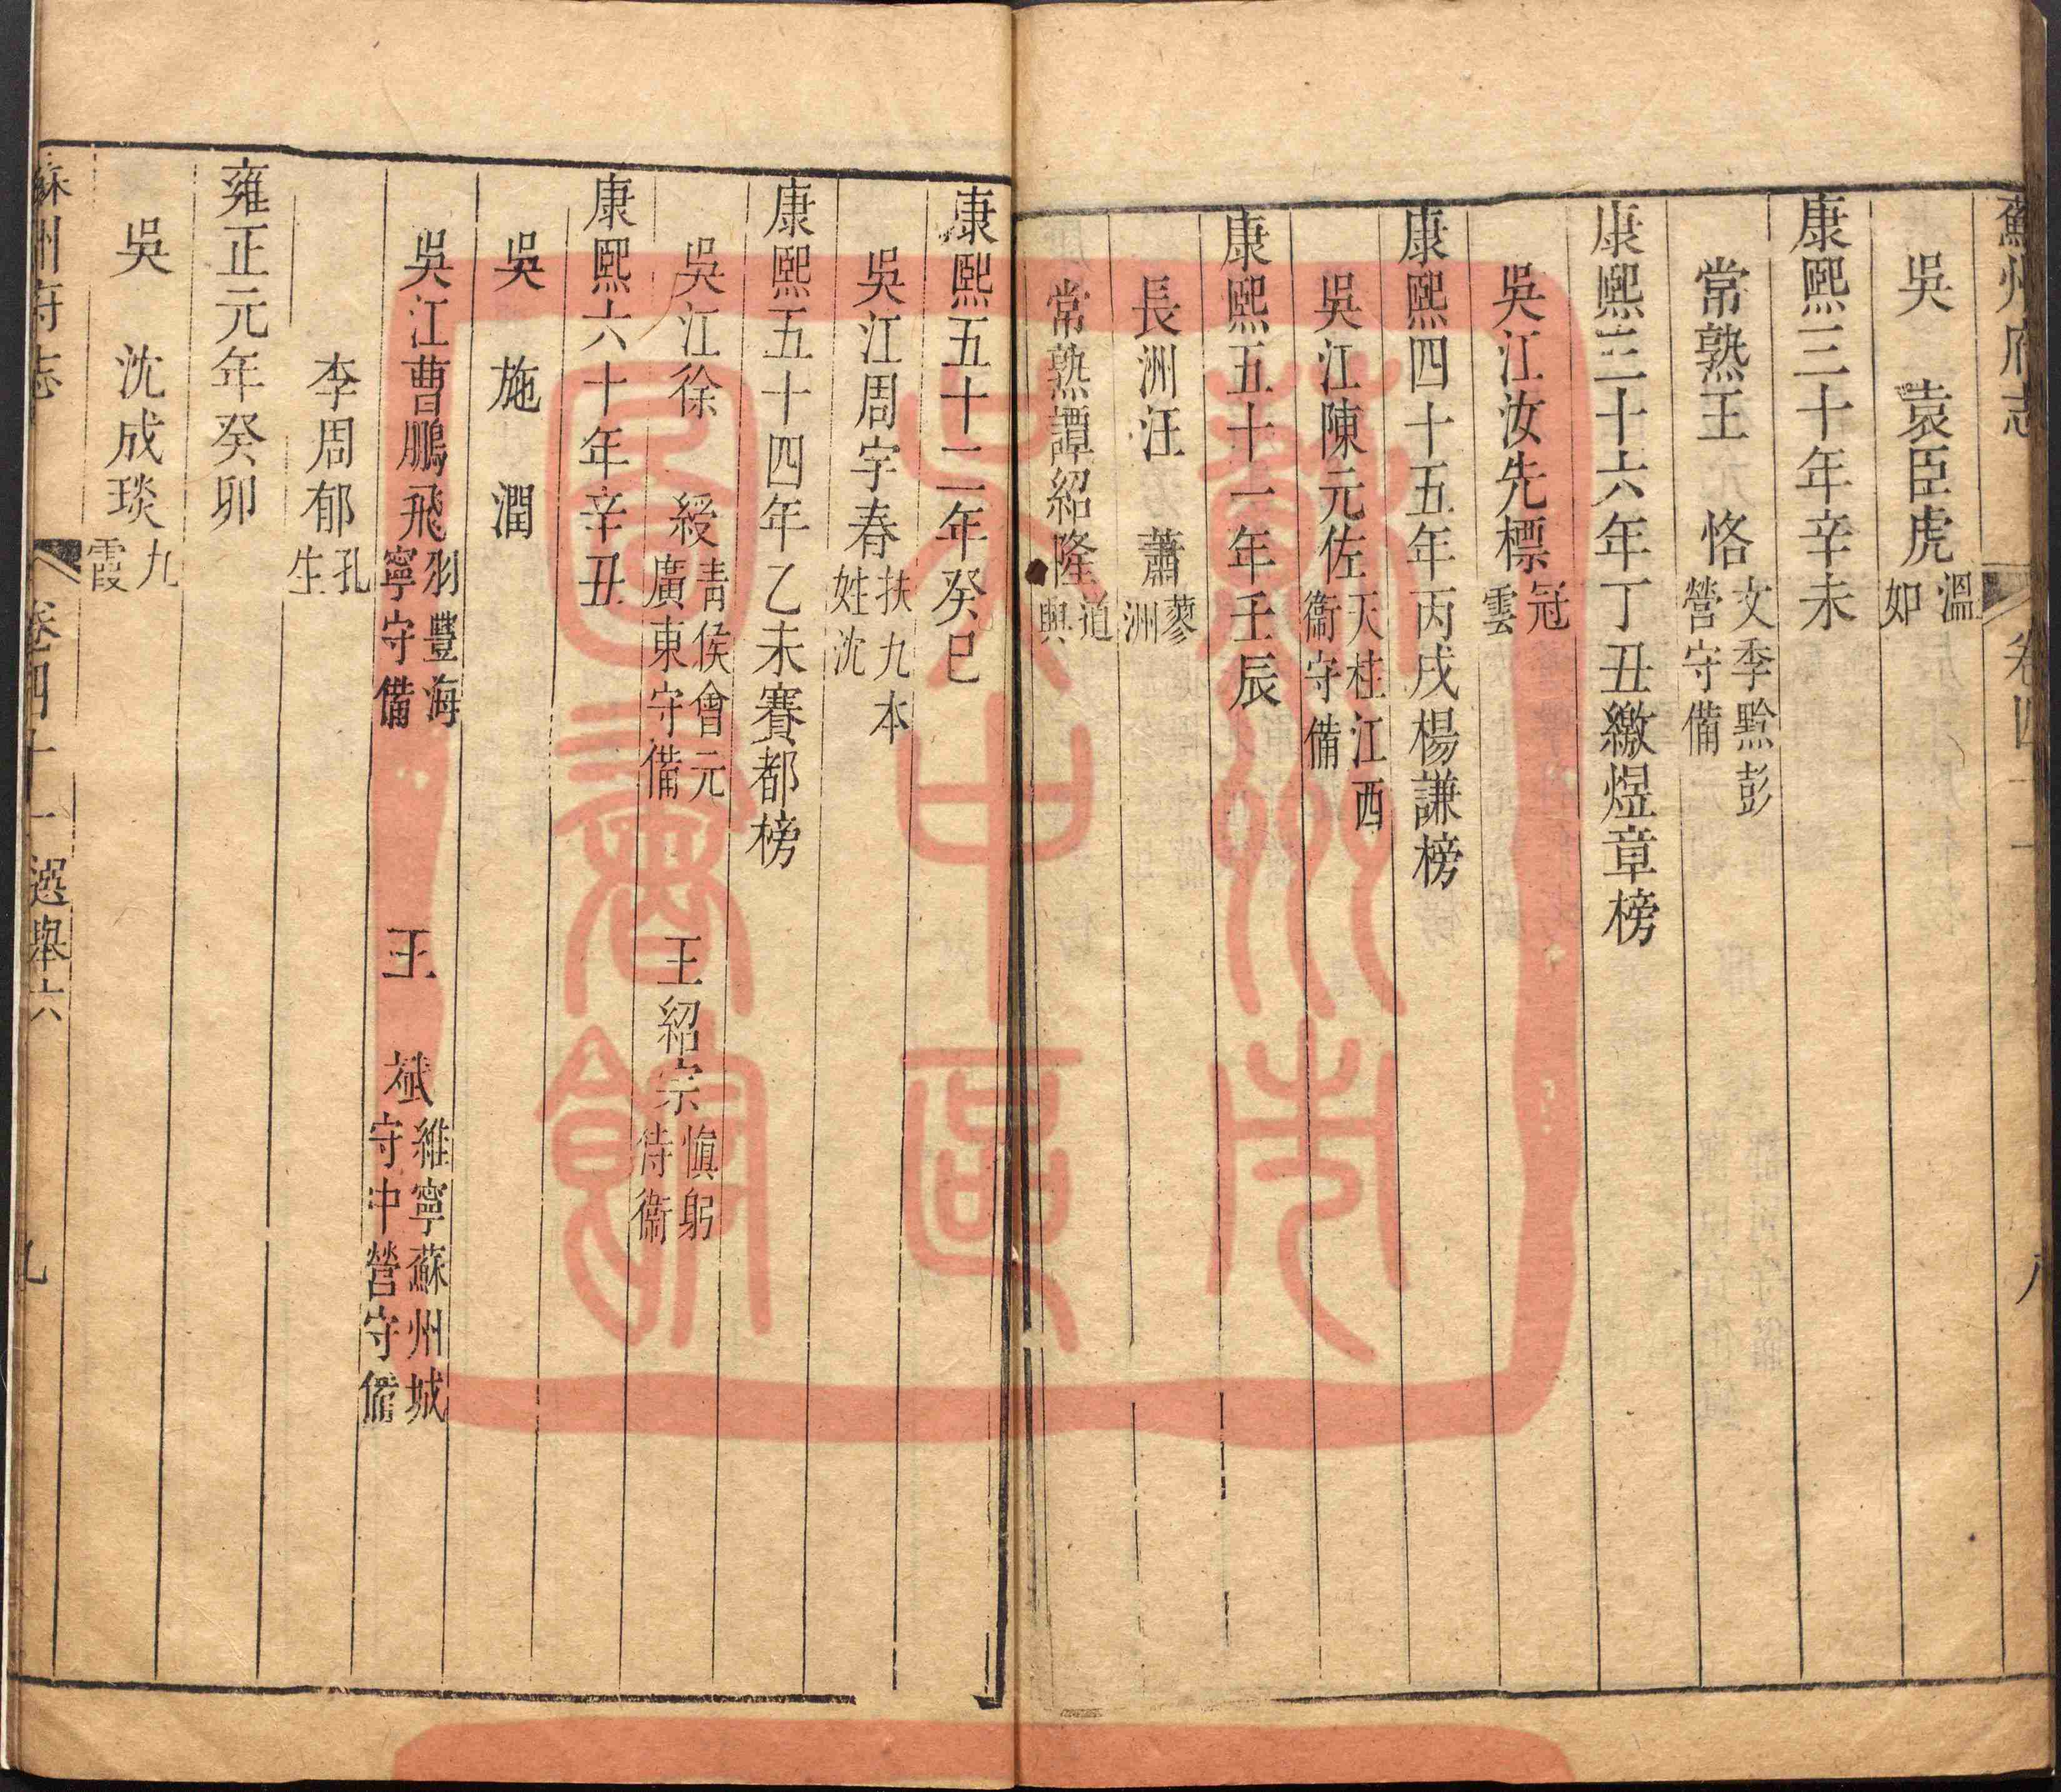 蘇州府志 卷四十一 八
吳 袁臣虎 溫如
康熙三十年辛未
常熟王 恪 文季黔彭營守備
康熙三十六年丁丑繳煜章榜
吳江汝先標 冠雲
康熙四十五年丙戌楊謙榜
吳江陳元佐 天桂江西衞守備
康熙五十一年壬辰
長洲汪 蕭 蓼洲
常熟譚紹隆 道興
康熙五十二年癸巳
吳江周宇春 扶九本姓沈
康熙五十四年乙未賽都榜
吳江徐 綬 青侯會元廣東守備 王紹宗 愼躬侍衞
康熙六十年辛丑
吳 施 潤
吳江曹鵬飛 羽豐海寧守備 王 斌 維寧蘇州城守中營守備
李周郁 孔生
雍正元年癸卯
吳 沈成琰 九霞
蘇州府志 卷四十一 選舉六 九
蘇州市吳中區圖書館